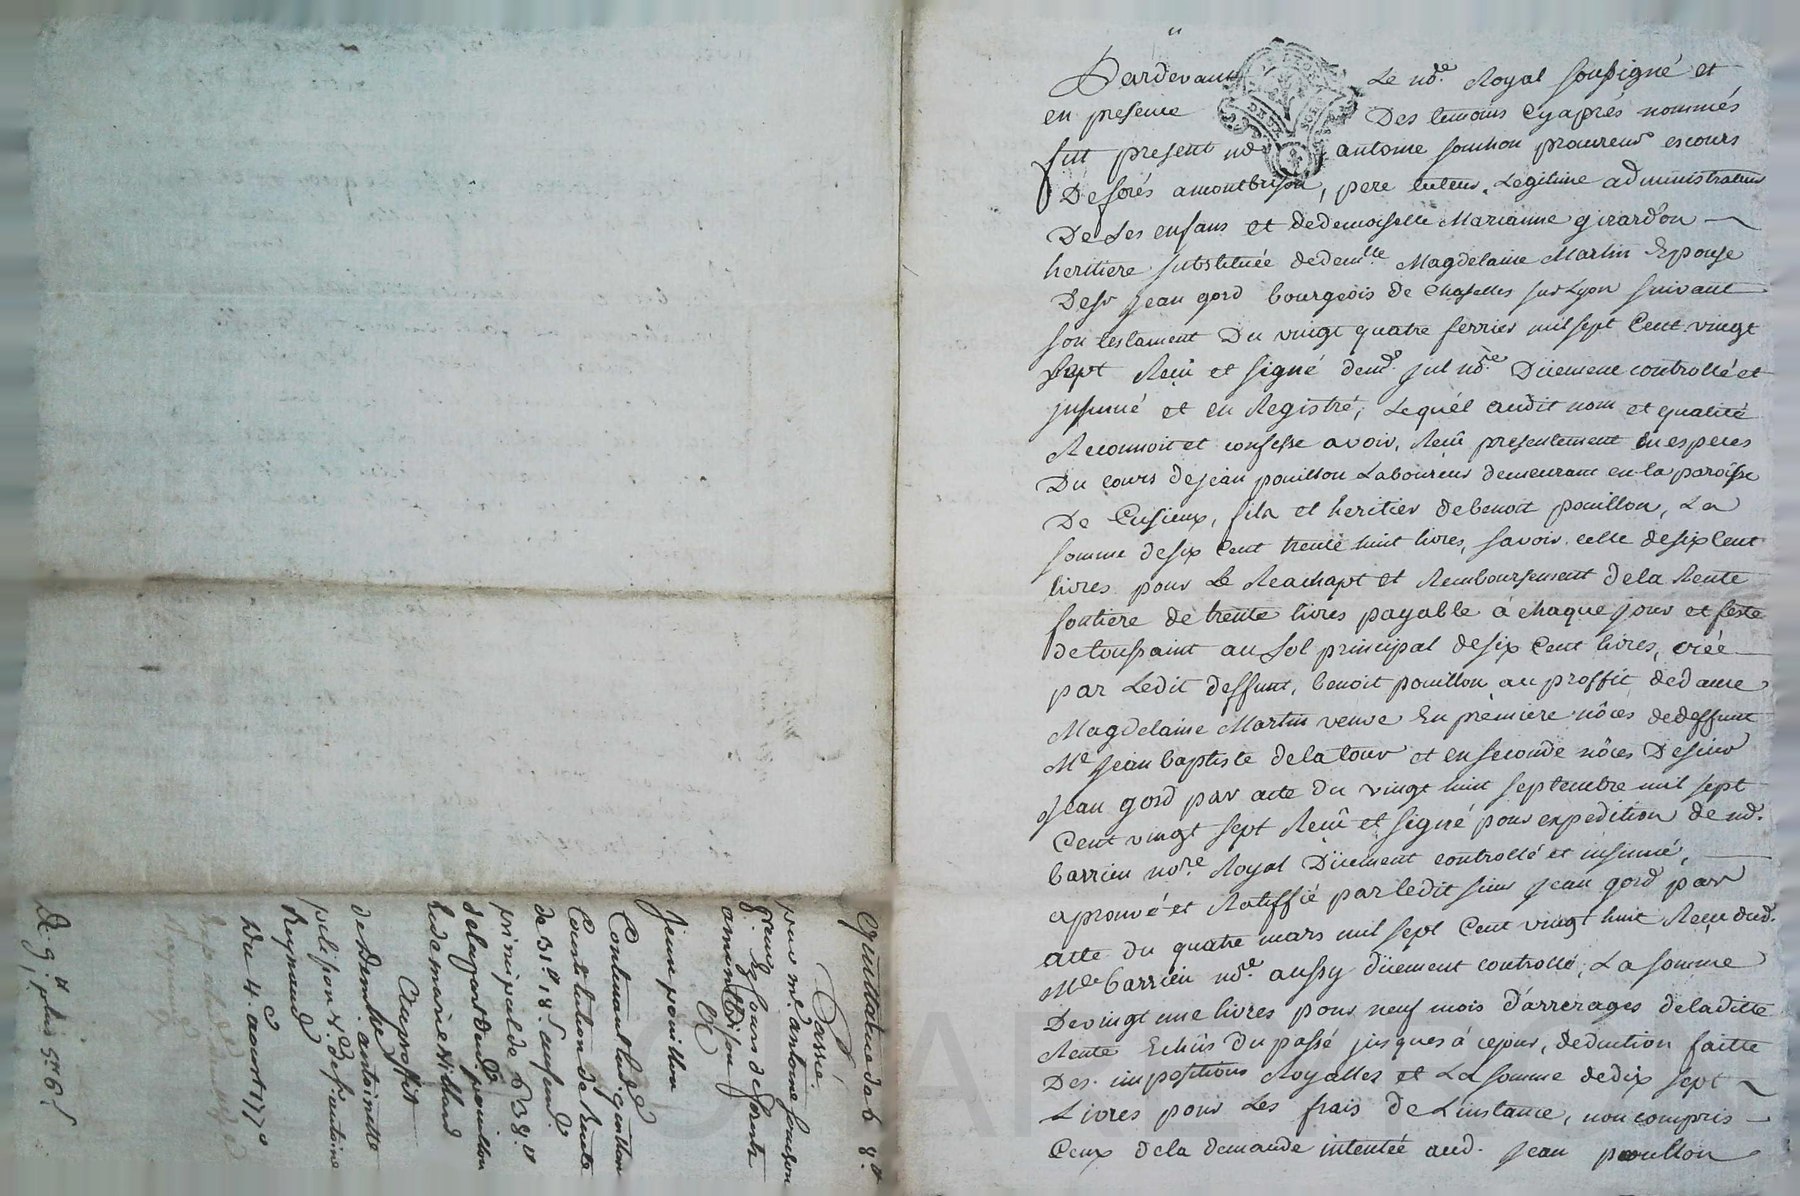 Pardevant Le nore. Royal soussigné et
en presence Des temoins Cyaprés nommés
fut present md antoine souchon procureur escours
De forés amontbrison, pere tuteur, Legitime administrateur
De Ses enfans et de demoiselle Marianne girardon
heritiere substituée de demlle Magdelaine Martin Epouse
De sr jean gord bourgeois de Chaselles sur Lyon suivant
son testament Du vingt quatre ferrier mil sept Cent vingt
sept Reçû et signé de md. jul nore. Düement controllé et
jnsinué et en Registré; Lequél audit nom et qualité
Reconnoit et confesse avoir, Reçû presentement en especes
Du cours de jean pouillon Laboureur demeurant en la paroisse
De Cusieux, fils et heritier de benoit pouillon, La
somme de six Cent trente huit livres, savoir celle de six Cent
livres pour Le Reachapt et Remboursement de la Rente
fontiere de trente livres payable à chaque jour et feste
de toussaint au sol principal de six Cent livres, créé
par Ledit deffunt, benoit pouillon au proffit de dame
Magdelaine Martin veuve En premiere nôces de deffunt
Me jean baptiste de la tour et en seconde nôces De sieur
Jean gord par acte du vingt huit septembre mil sept
Cent vingt sept Reçû et signé pour expedition de md.
barrieu nore Royal Düement controllé et insinué,
aprouvé et Ratiffié par ledit sieur jean gord par
acte du quatre mars mil sept Cent vingt huit Reçu dud.
Me barrieu nore. aussy düement controllé; La somme
De vingt une livres pour neuf mois d'arrerages de laditte
Rente Echüs du passé jusques à ce jour, deduction faitte
Des impositions Royalles et La somme de dix sept
Livres pour Les frais de L'instance, non compris
Ceux de la demande intentée aud. jean pouillon
Quittance de 6 8.ll
Passée
par me. antoine souchon
Jean pouillon
Contenant lad. quittance
Constitution de Rente
de 31.ll 18.s
principal de 638.ll
de la part dud. pouillon
Au proffit
de Demlle. antoinette
Reymond
Du 4.e aoust 1770